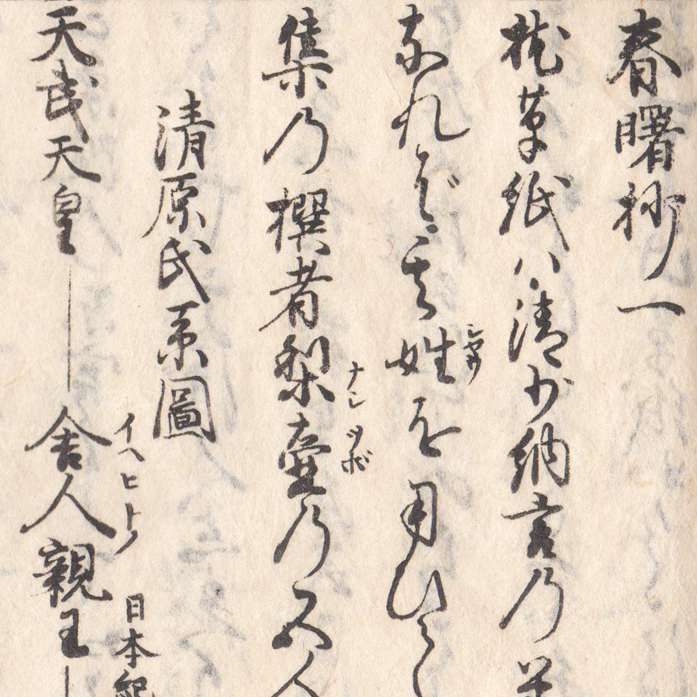 春曙抄一
枕草紙ハ清少納言乃
なれバ其姓を用ひ
集乃撰者梨壷乃五人
ナシツボ
清原氏系圖
天武天皇
舎人親王
イヘヒト
日本紀